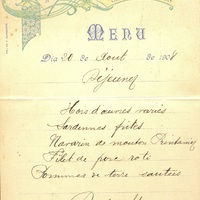 MENU
Dia 20 de Aout de 1908
Déjeuner
Hors d'œuvres variés
Sardennes frites
Navarin de mouton Printanier
Filet de porc roti
Pommes de terre sautées